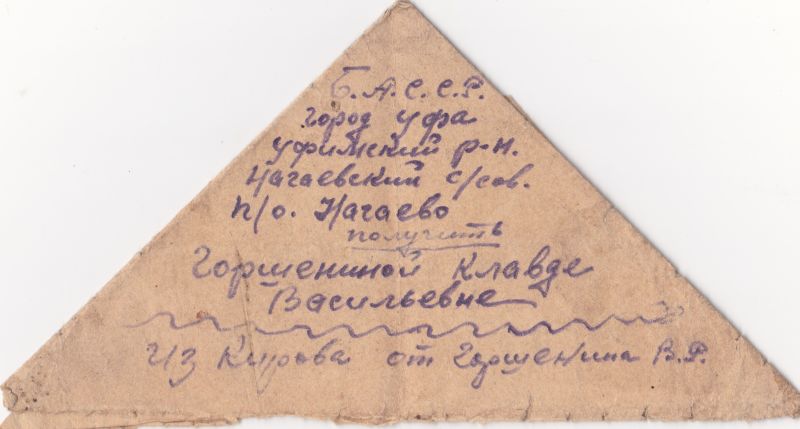 Б.А.С.С.Р.
город Уфа
Уфимский р-н.
Нагаевский с/сов.
п/о. Нагаево
получить
Горшениной Клавде
Васильевне
Из Кирова от Горшенина В.Р.